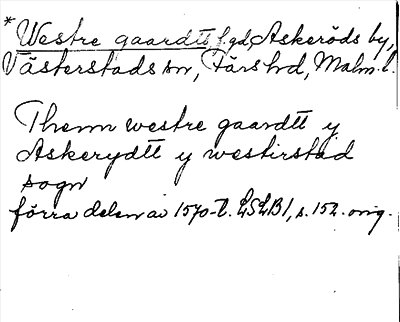 * Westre gaardtt f. gd, Askeröds by,
Västerstads sn, Färs hd, Malm. l.
Themn westre gaardtt y
Askerydtt y westirstad
sogn
förra delen av 1570-t. LSLB1, s. 152. orig.